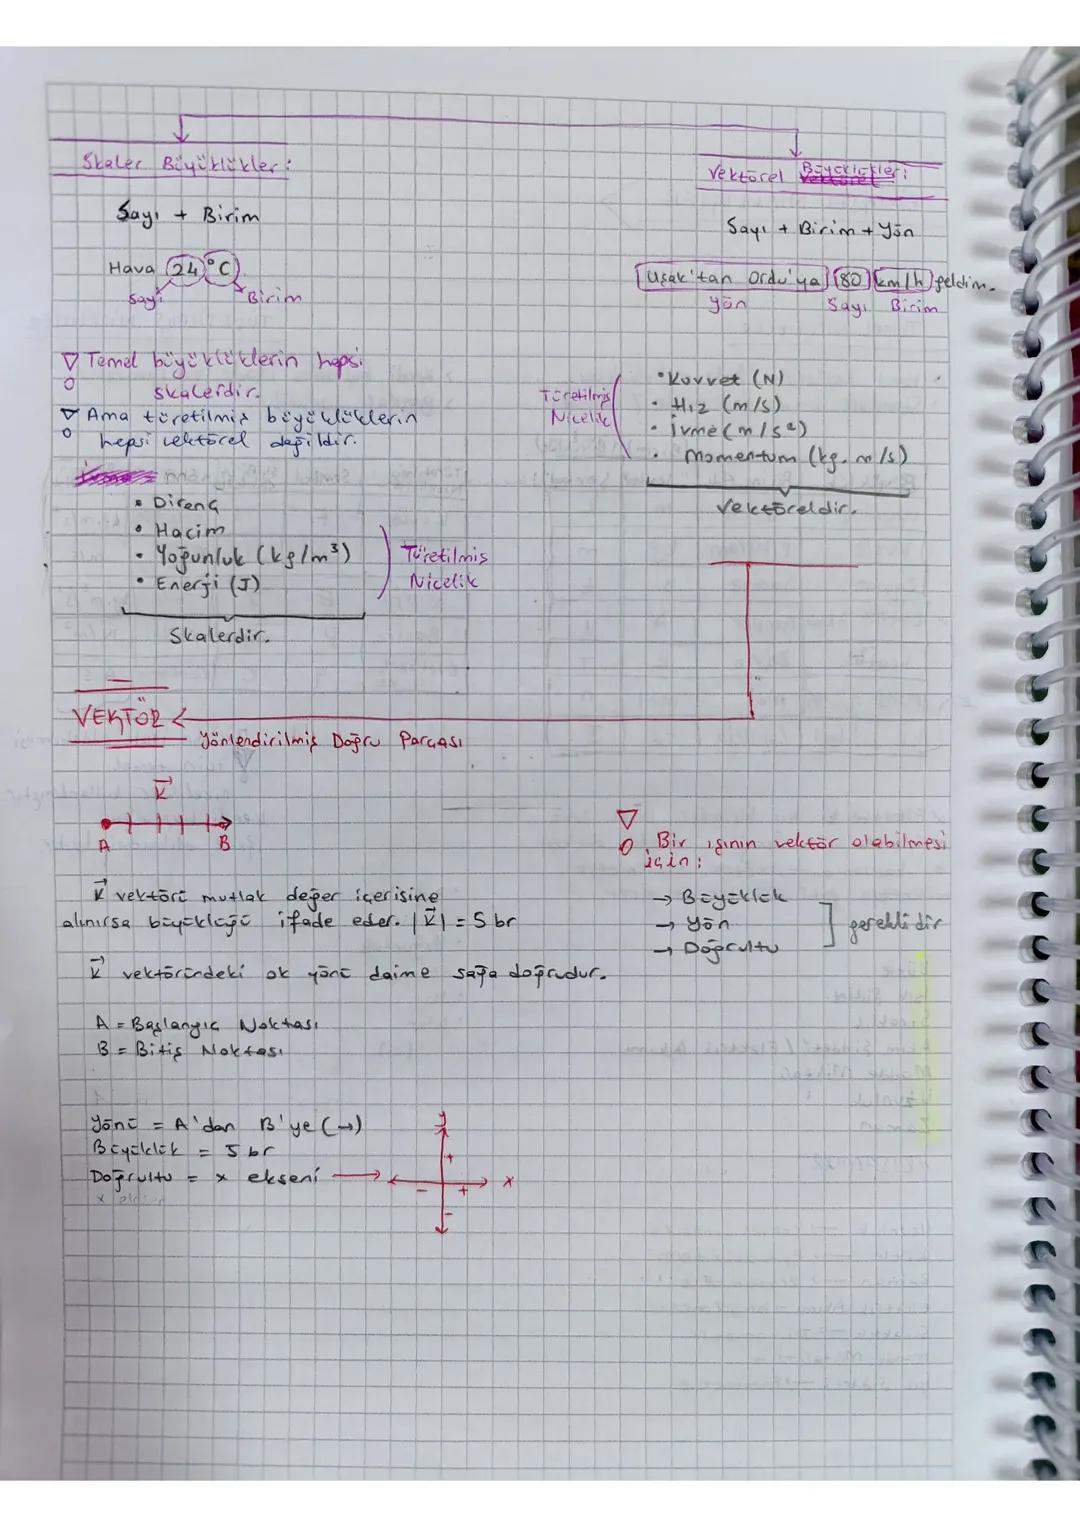 Skaler Büyüklükler:
Sayı + Birim
Hava 24 °C
Sayı Birim
▽ Temel büyüklüklerin hepsi
skalerdir.
▽ Ama türetilmiş büyüklüklerin
hepsi vektörel değildir.
• Direnç
• Hacim
• Yoğunluk (kg/m³)
• Enerji (J)
Türetilmiş
Nicelik
Skalerdir.
Vektörel Büyüklükler:
Sayı + Birim + Yön
Uşak'tan Ordu'ya 80 km/h geldim.
Yön Sayı Birim
Türetilmiş
Nicelik
• Kuvvet (N)
• Hız (m/s)
• İvme (m/s²)
• Momentum (kg.m/s)
Vektöreldir.
VEKTÖR
Yönlendirilmiş Doğru Parçası
K
A B
K vektörü mutlak değer içerisine
alınırsa büyüklüğü ifade eder. |K| = 5 br
K vektöründeki ok yönü daime sağa doğrudur.
A = Başlangıç Noktası
B = Bitiş Noktası
Yönü = A'dan B'ye (→)
Büyüklük = 5 br
Doğrultu = x ekseni →
y
+
- + x
-
▽ Bir ışının vektör olabilmesi
için:
→ Büyüklük
→ Yön
→ Doğrultu
gereklidir